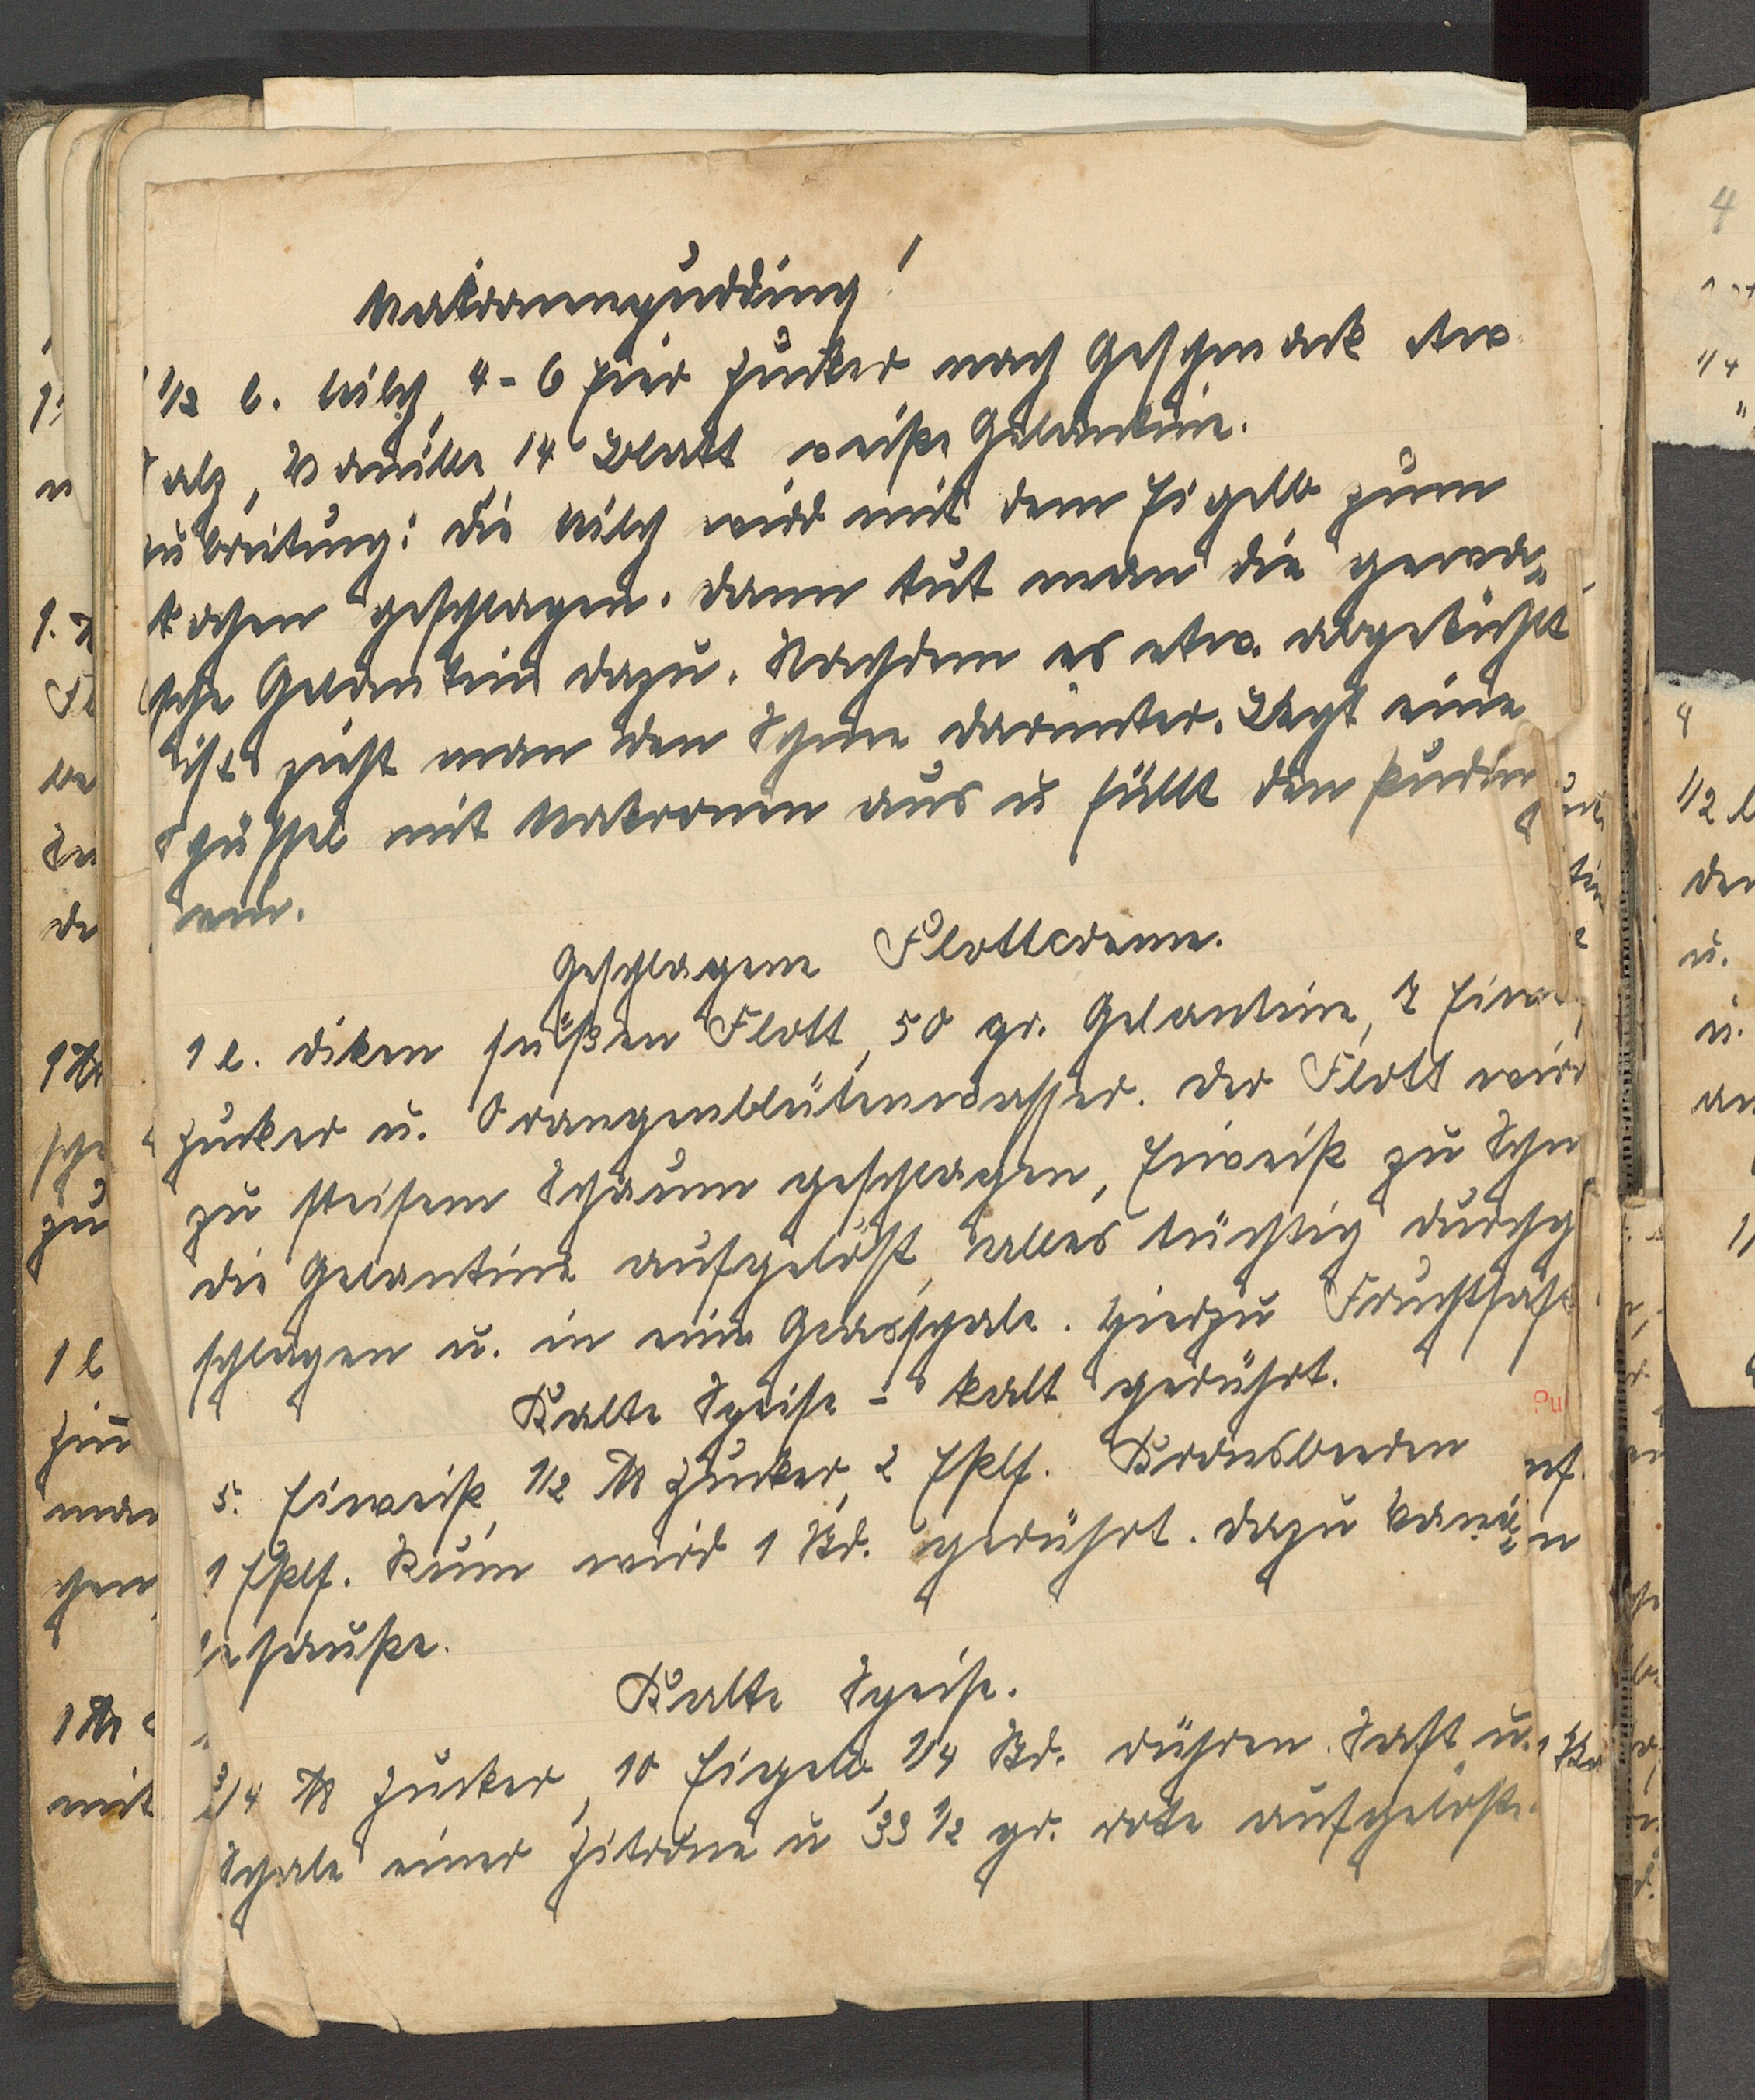 Makronenpudding!
1/2 l. Milch, 4-6 Eier Zucker nach Geschmack etw.
Salz, Vanille, 14 Blatt weiße Gelantine.
Zubreitung: Die Milch wird mit dem Eigelb zum
kochen geschlagen. Dann tut man die gewa-
sche Gelantine dazu. Nachdem es etw. abgekühlt
ist zieht man den Schnee darunter. Legt eine
Schüssel mit Makronen aus u füllt den Puddin
ein.
Geschlagene Flottcreme.
1 l. dicken süßen Flott, 50 gr. Gelantine, 7 Eiwe
Zucker u. Orangenblütenwasser. Der Flott wird
zu steifem Schaum geschlagen, Eiweiß zu Schn
die Gelantine aufgelöst, alles tüchtig durchg
schlagen u. in eine Glasschale. Hierzu Fruchtsaft
Kalte Speise - kalt gerührt.
5. Eiweiß, 1/2 ℔ Zucker, 2 Eßlf. Kronsbeeren
1 Eßlf. Rum wird 1 Std. gerührt. Dazu Vani-
lesauße.
Kalte Speise.
3/4 ℔ Zucker, 10 Eigelb, 1/4 Std. rühren. Saft u.
Schale einer Zitrone u 33 1/2 gr. rote aufgelöste